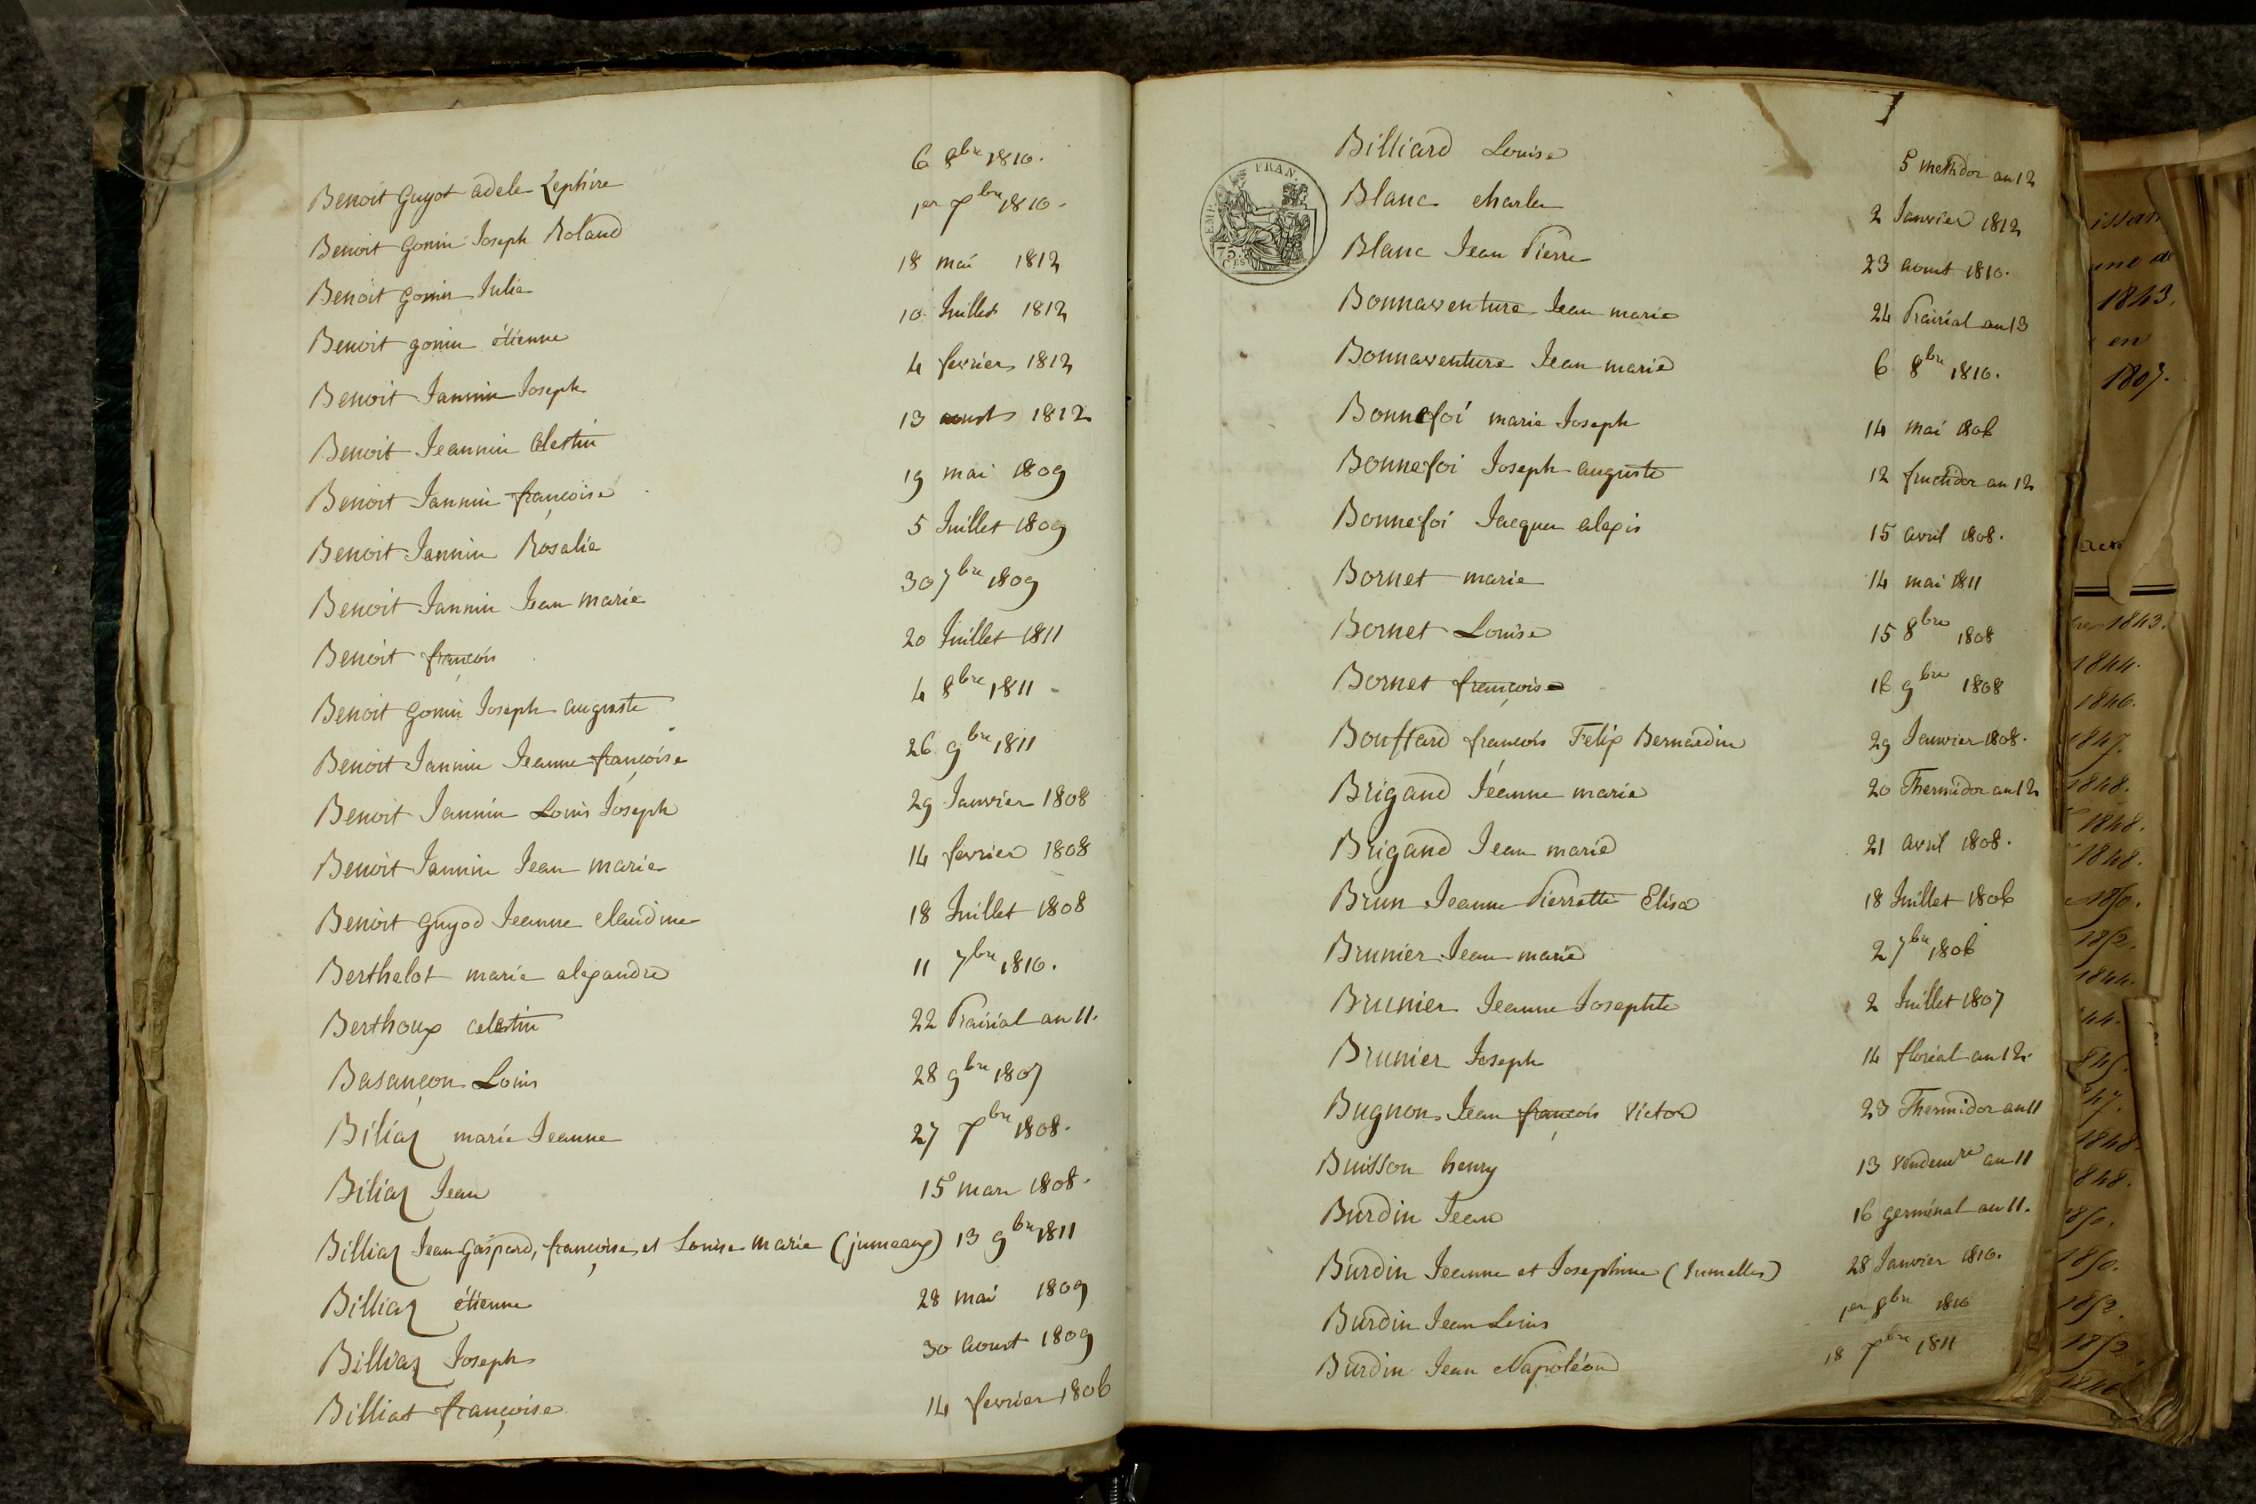 Benoit Guyot adele Zephire 6 8bre 1810.
Benoit Gonin Joseph Roland 1er Xbre 1810.
Benoit Gonin Julie 18 mai 1812
Benoit gonin étienne 10 Juillet 1812
Benoit Jannin Joseph 4 fevrier 1812
Benoit Jeannin Celestin 13 aoust 1812
Benoit Jannin françoise 19 mai 1809
Benoit Jannin Rosalie 5 Juillet 1809
Benoit Jannin Jean marie 30 7bre 1809
Benoit françois 20 Juillet 1811
Benoit Gonin Joseph auguste 4 8bre 1811
Benoit Jannin Jeanne françoise 26 9bre 1811
Benoit Jannin Louis Joseph 29 Janvier 1808
Benoit Jannin Jean marie 14 fevrier 1808
Benoit Guyod Jeanne Claudine 18 Juillet 1808
Berthelot marie alexandre 11 7bre 1810.
Berthoux celestin 22 Prairial an 11.
Basançon Louis 28 9bre 1807
Biliaz marie Jeanne 27 Xbre 1808.
Biliaz Jean 15 mars 1808.
Billiaz Jean Gaspard, françoise et Louise marie (jumeaux) 13 9bre 1811
Billiaz étienne 28 mai 1809
Billiaz Joseph 30 aoust 1809
Billiat françoise 14 fevrier 1806
EMP. FRAN.
75 CES
Billiard Louise 5 messidor an 12
Blanc charles 2 Janvier 1812
Blanc Jean Pierre 23 aoust 1810.
Bonnaventure Jean marie 24 Prairial an 13
Bonnaventure Jean marie 6 8bre 1810.
Bonnefoi marie Joseph 14 mai 1806
Bonnefoi Joseph auguste 12 fructidor an 12
Bonnefoi Jacques alexis 15 avril 1808.
Bornet marie 14 mai 1811
Bornet Louise 15 8bre 1808
Bornet françoise 16 9bre 1808
Bouffard françois Felix Bernardin 29 Janvier 1808.
Brigand Jeanne marie 20 Thermidor an 12
Brigand Jean marie 21 avril 1808.
Brun Jeanne Pierrette Elisa 18 Juillet 1806
Brunier Jean marie 2 7bre 1806
Brunier Jeanne Josephte 2 Juillet 1807
Brunier Joseph 14 floréal an 12.
Bugnon Jean françois victor 23 Thermidor an 11
Buisson henry 13 vendemre an 11
Burdin Jean 16 germinal an 11.
Burdin Jeanne et Josephine (Jumelles) 28 Janvier 1810.
Burdin Jean Louis 1er 8bre 1810
Burdin Jean Napoléon 18 Xbre 1811
1843.
en
1807.
1843.
1844.
1846.
1847.
1848.
1848.
1848.
1850.
1852.
1844.
44.
845.
47.
1848.
1848.
1850.
1850.
1852.
1852.
1846